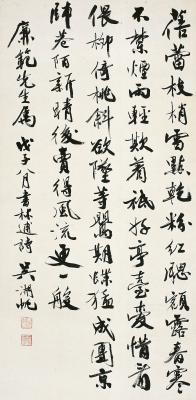 蓓蕾枝梢血點乾粉紅腮頰露春寒
不禁煙雨輕欹著祇好亭臺愛惜看
偎柳倚桃斜欲墜等鶯期蝶猛成團京
師巷陌新晴後賣得風流更一般
廉範先生屬 戊子八月書林逋詩 吳湖帆